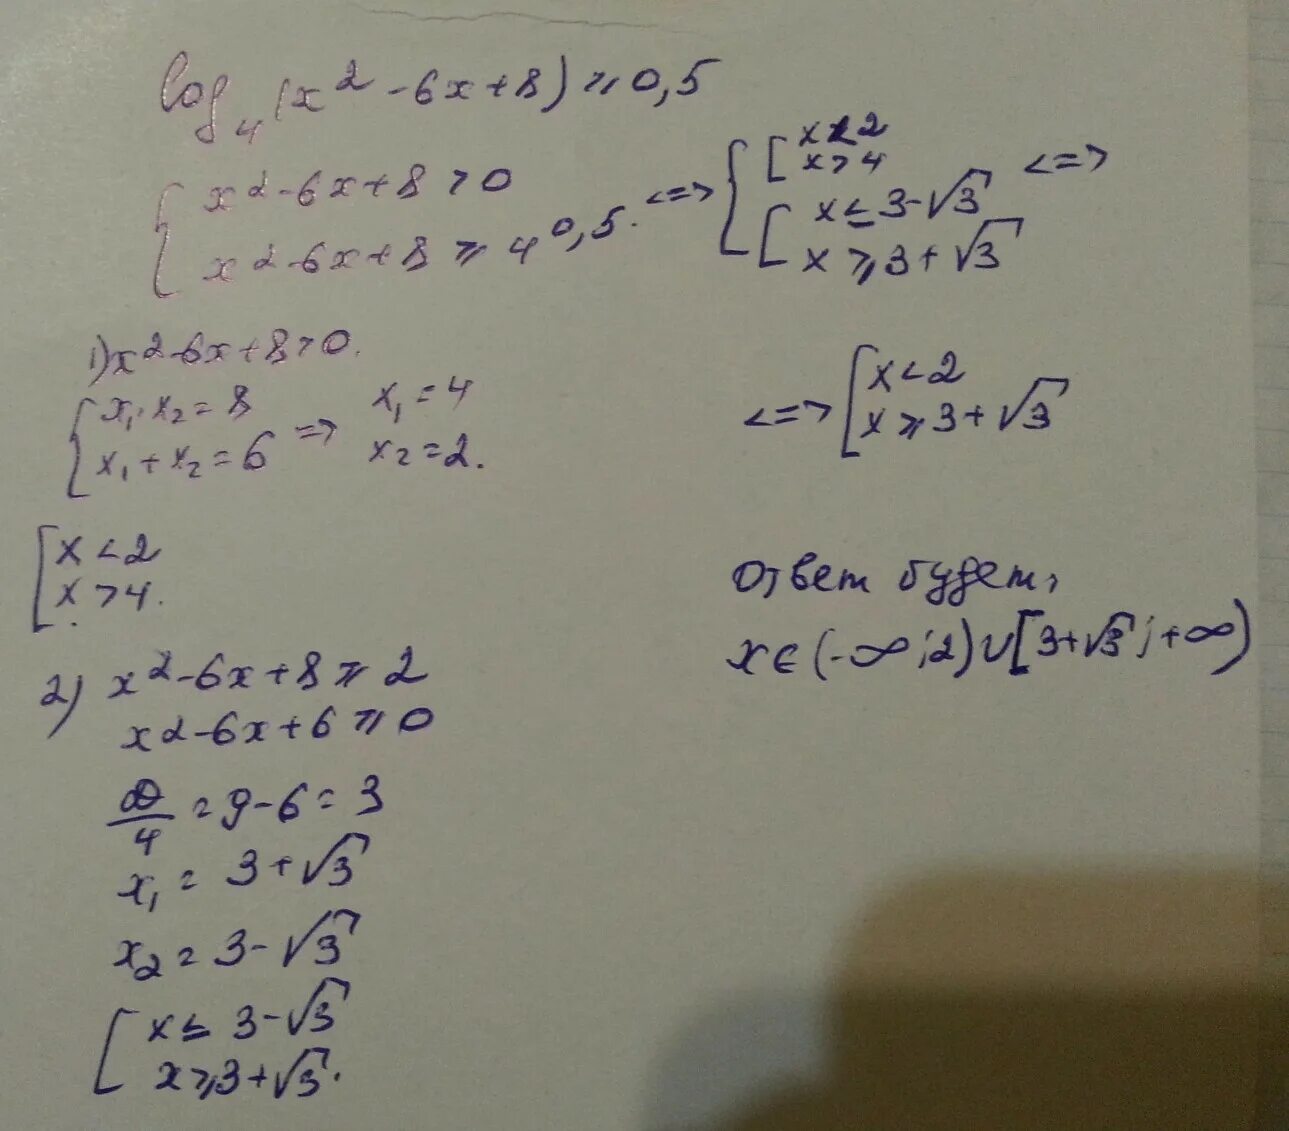 log₄(x² - 6x + 8) ⩾ 0,5
{ x² - 6x + 8 > 0
x² - 6x + 8 ⩾ 4^0,5. <=> { [ x < 2
x > 4
[ x ≤ 3 - √3
x ⩾ 3 + √3 <=>
1) x² - 6x + 8 > 0.
{ x₁ · x₂ = 8
x₁ + x₂ = 6 => x₁ = 4
x₂ = 2.
[ x < 2
x > 4.
2) x² - 6x + 8 ⩾ 2
x² - 6x + 6 ⩾ 0
D/4 = 9 - 6 = 3
x₁ = 3 + √3
x₂ = 3 - √3
[ x ≤ 3 - √3
x ⩾ 3 + √3.
<=> [ x < 2
x ⩾ 3 + √3
Ответ будет,
x ∈ (-∞; 2) ∪ [3 + √3; +∞)